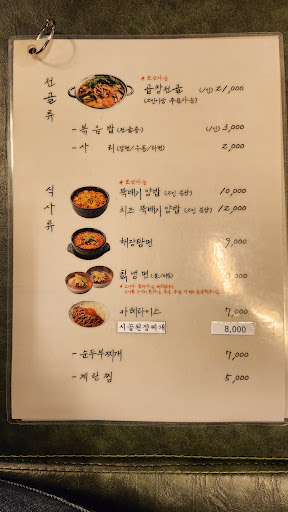 전골류
* 포장가능
곱창전골 (1인) 21,000
(2인이상 주문가능)
- 볶음밥 (전골용) (1인) 3,000
- 사리 (당면/우동/라면) 2,000
식사류
* 포장가능
뚝배기 양밥 (1인 분량) 10,000
치즈 뚝배기 양밥 (1인 분량) 12,000
해장라면 9,000
칡냉면 (물/비빔) 7,000
카레라이스 7,000
시골된장찌개 8,000
- 순두부찌개 7,000
- 계란찜 5,000